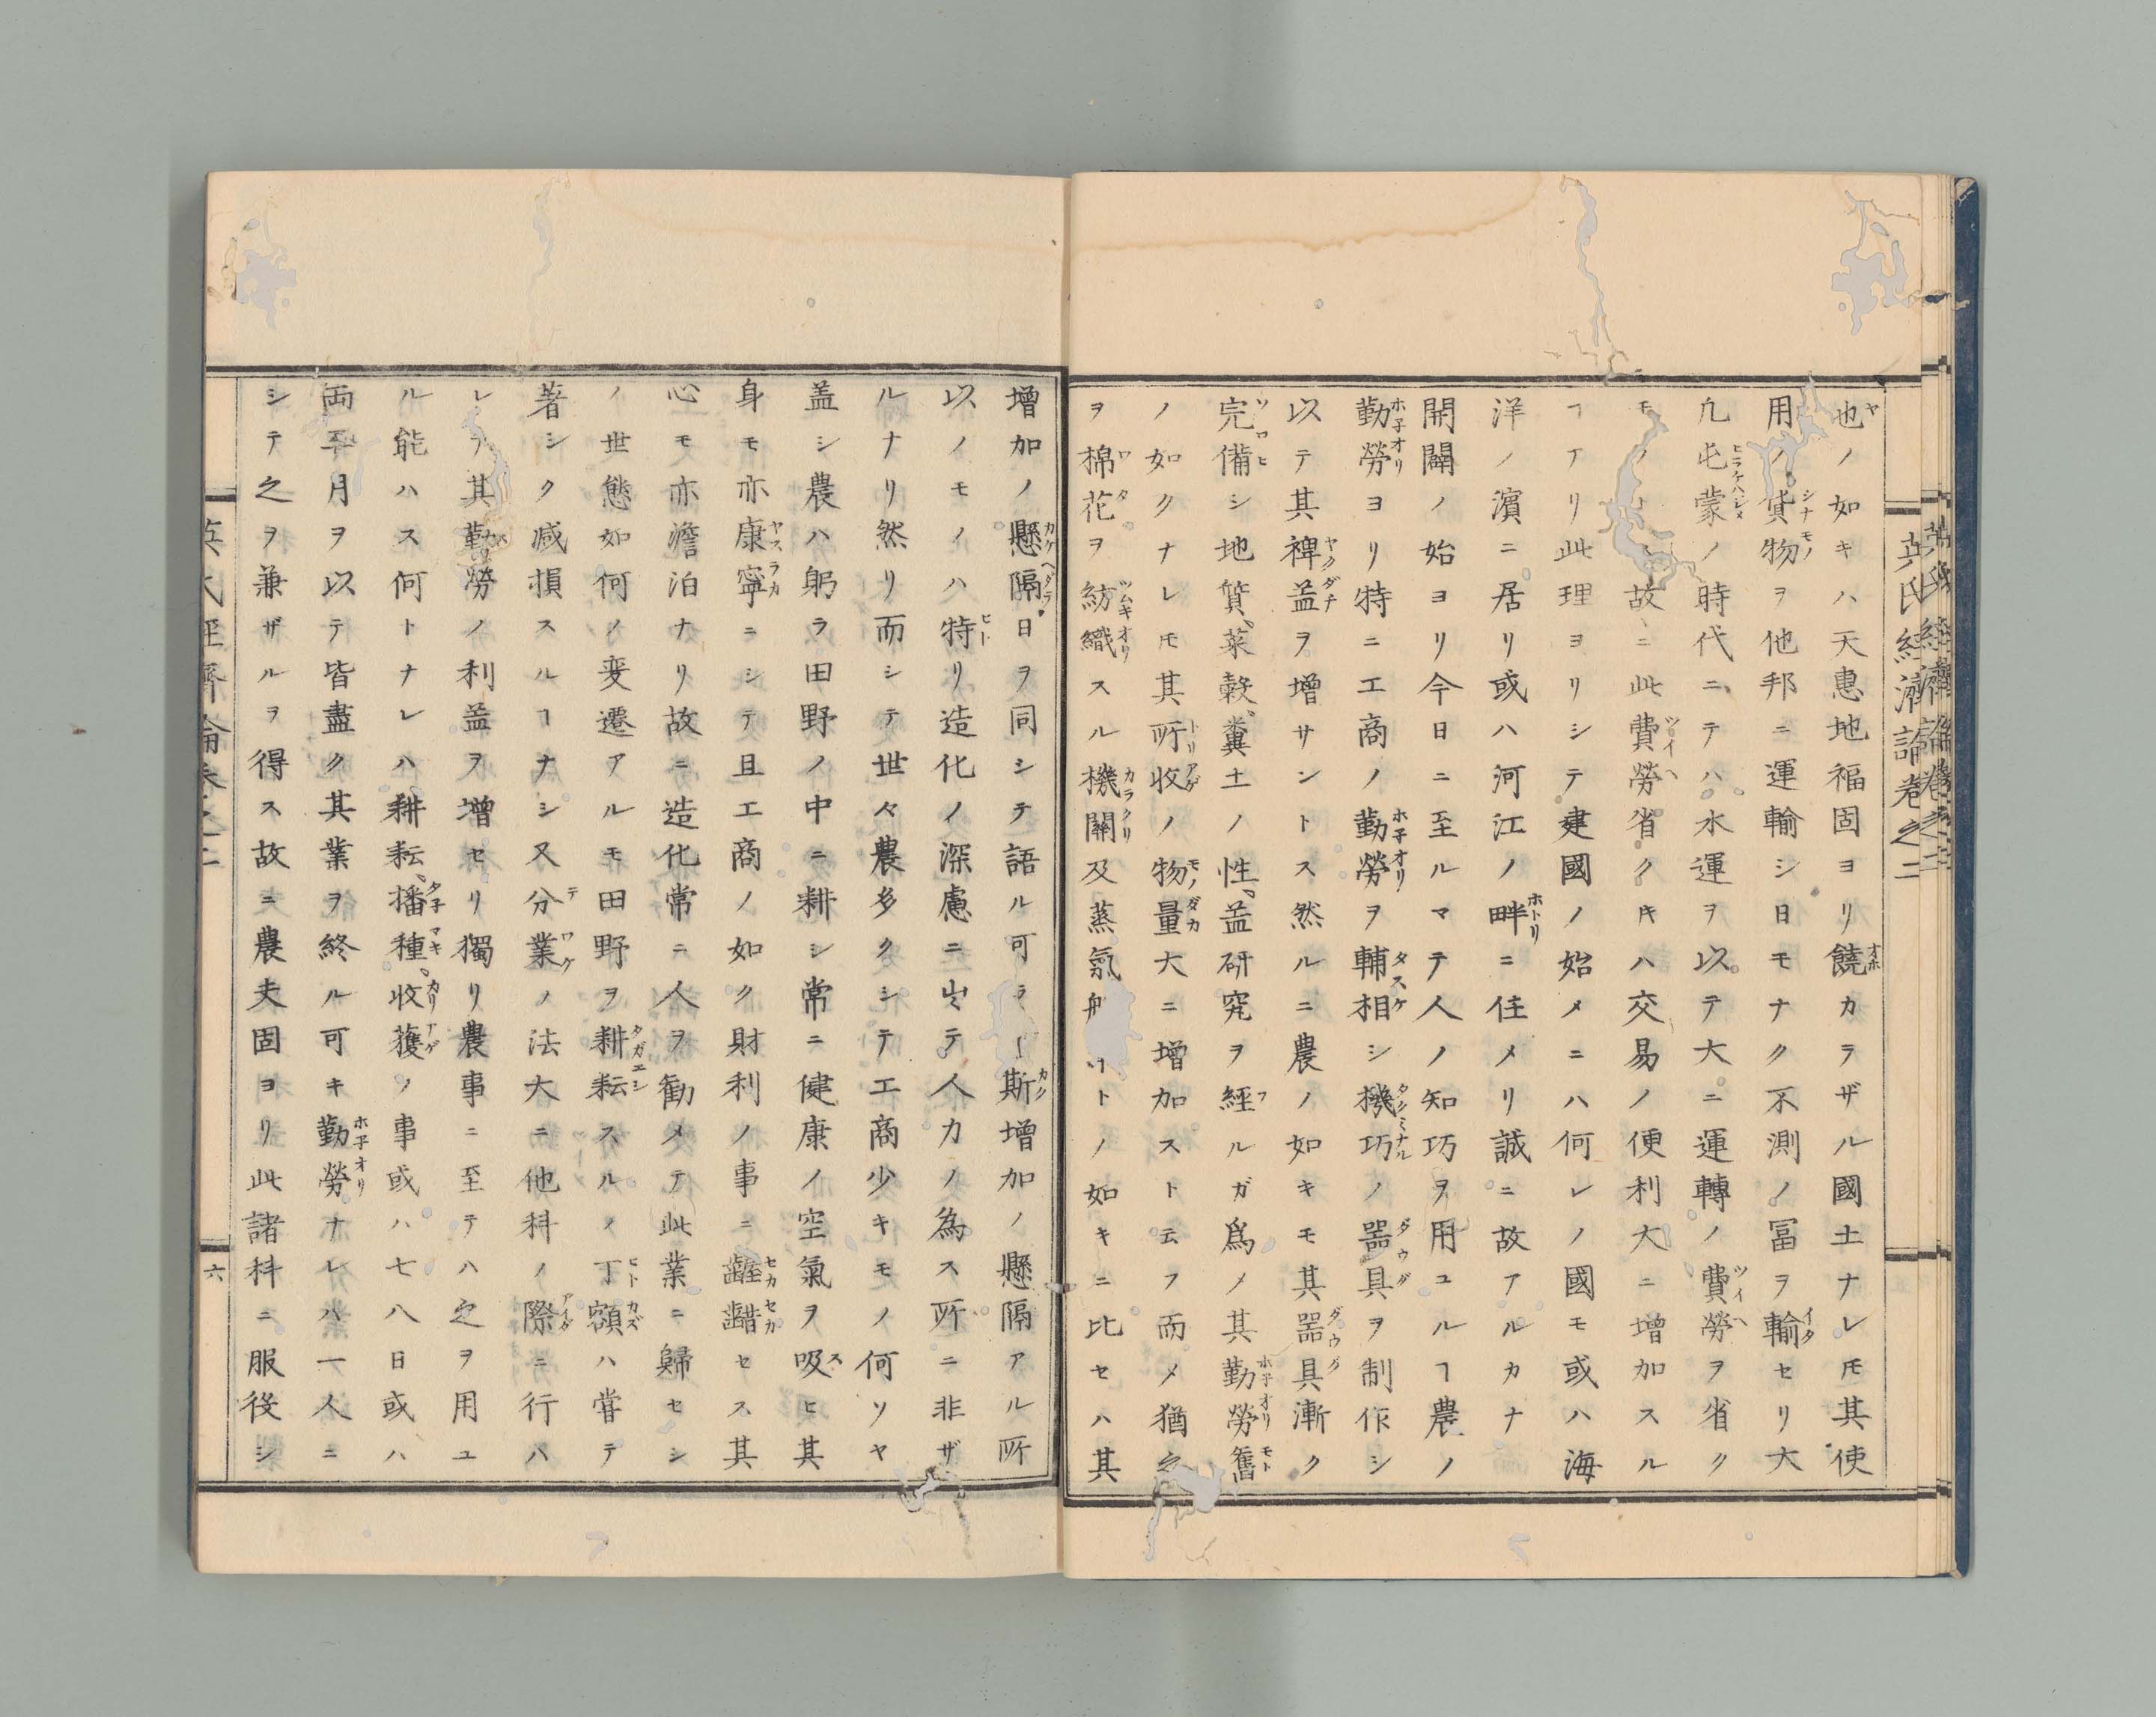 英氏經濟論卷之二
也ノ如キハ天惠地福固ヨリ饒カラザル國土ナレ𪜈其使
用ノ貨物ヲ他邦ニ運輸シ日モナク不測ノ冨ヲ輸セリ大
凢屯蒙ノ時代ニテハ水運ヲ以テ大ニ運轉ノ費勞ヲ省ク
モノ故ニ此費勞省クキハ交易ノ便利大ニ增加スル
ヿアリ此理ヨリシテ建國ノ始メニハ何レノ國モ或ハ海
洋ノ濱ニ居リ或ハ河江ノ畔ニ住メリ誠ニ故アルカナ
開闢ノ始ヨリ今日ニ至ルマテ人ノ知巧ヲ用ユルヿ農ノ
勤勞ヨリ特ニ工商ノ勤勞ヲ輔相シ機巧ノ噐具ヲ制作シ
以テ其裨益ヲ增サントス然ルニ農ノ如キモ其噐具漸ク
完備シ地質、菜穀、糞土ノ性、益研究ヲ經ルガ爲メ其勤勞舊
ノ如クナレ𪜈其所收ノ物量大ニ增加スト云フ而メ猶之
ヲ棉花ヲ紡織スル機關及蒸氣トノ如キニ比セハ其
增加ノ懸隔日ヲ同シテ語ル可ラ斯增加ノ懸隔アル所
以ノモノハ特リ造化ノ深慮ニ出テ人力ノ為ス所ニ非ザ
ルナリ然リ而シテ世々農多クシテ工商少キモノ何ソヤ
盖シ農ハ躬ラ田野ノ中ニ耕シ常ニ健康ノ空氣ヲ吸ヒ其
身モ亦康寧ニシテ且工商ノ如ク財利ノ事ニ齷齪セス其
心モ亦澹泊ナリ故ニ造化常ニ人ヲ勸メテ此業ニ歸セシ
ノ世態如何ノ変遷アルモ田野ヲ耕耘スルノ丁額ハ甞テ
著シク減損スルヿナシ又分業ノ法大ニ他科ノ際ニ行ハ
レテ其勤勞ノ利益ヲ增セリ獨リ農事ニ至テハ之ヲ用ユ
ル能ハス何トナレハ耕耘、播種、收獲ノ事或ハ七八日或ハ
両三月ヲ以テ皆盡ク其業ヲ終ル可キ勤勞ナレハ一人ニ
シテ之ヲ兼ザルヲ得ス故ニ農夫固ヨリ此諸科ニ服役シ
六